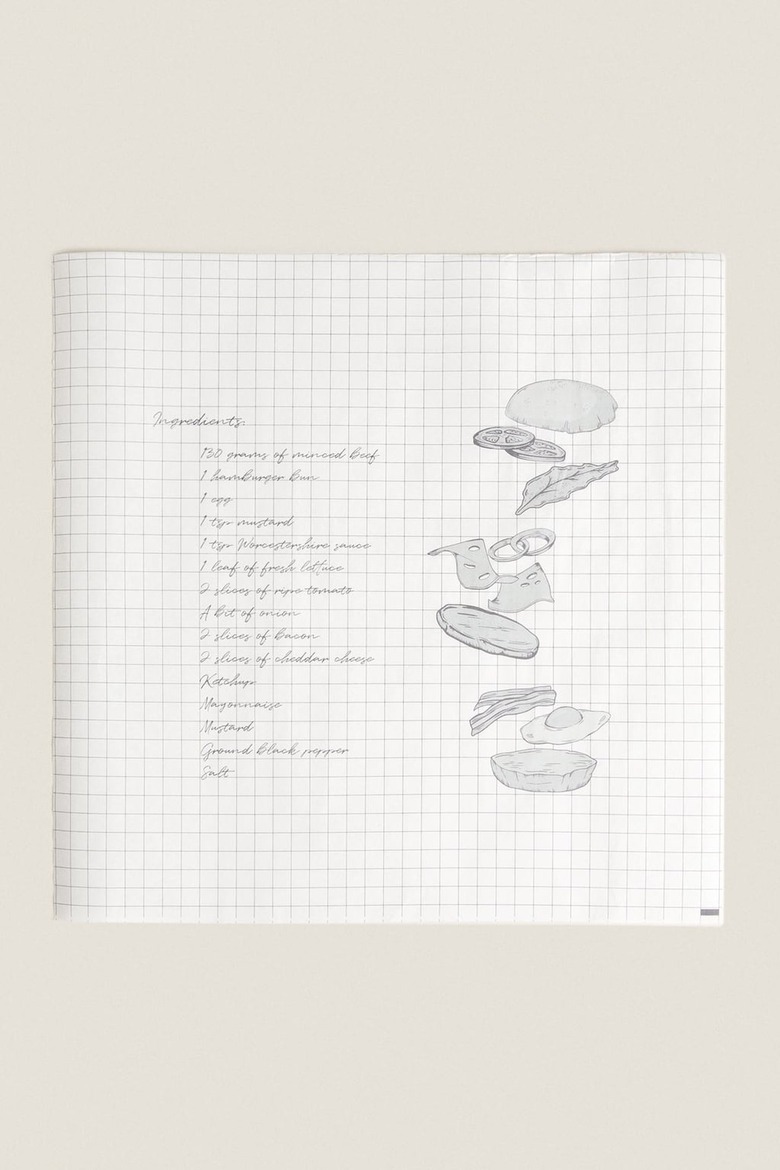 Ingredients:
130 grams of minced Beef
1 hamBurger Bun
1 egg
1 tsp mustard
1 tsp Worcestershire sauce
1 leaf of fresh lettuce
2 slices of ripe tomato
A Bit of onion
2 slices of Bacon
2 slices of cheddar cheese
Ketchup
Mayonnaise
Mustard
Ground Black pepper
Salt